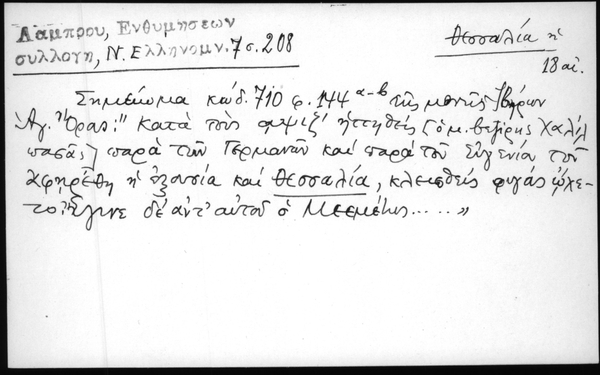 Λάμπρου, Ενθυμήσεων
συλλογη, Ν. Ελληνομν. 7 σ. 208
Θεσσαλία ἡ
18 αἰ.
Σημείωμα κώδ. 710 φ. 144 α-β τῆς μονῆς Ἰβήρων
Ἁγ. Ὄρους: "Κατὰ τοὺς αψιζ' ἡττηθεὶς [ὁ μ. βεζίρης Χαλὶλ
πασᾶς] παρὰ τῶν Γερμανῶν καὶ παρὰ τοῦ Εὐγενίου τοῦ
ἀφῃρέθη ἡ ἐξουσία καὶ Θεσσαλία, κλεισθεὶς φυγὰς ᾤχε-
το. Ἔγινε δὲ ἀντ' αὐτοῦ ὁ Μεεμέτης ..... »